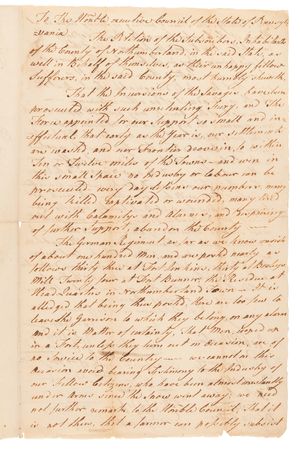 To The Honble executive Council of the State of Pennsyl
vania
The Petition of the Subscribers, Inhabitants
of the County of Northumberland, in the said State, as
well in Behalf of themselves, as their unhappy fellow
Sufferers, in the said County, most humbly sheweth
That the Incursions of the Savages have been
prosecuted with such unrelenting Fury, and The
Force appointed for our Support so Small and in-
effectual, that early as the year is, our Settlements
are wasted, and our Frontier driven in, to within
Ten or Twelve miles of the Towns — and even in
this small Space no Industry or Labour can be
prosecuted every day lessens our numbers, many
being killed captivated or wounded, many tired
out with Calamity and Alarms, and despairing
of further Support, abandon the County —
The German Regiment as far as we know consists
of about one hundred Men, and are posted nearly as
follows thirty three at Fort Jenkins, thirty at Bosleys
Mill Twenty four at Fort Bunner, the Residue at
Head Quarters in Northumberland Town — It is
alledged that being thus posted, there are too few to
leave the Garrison to which they belong on any alarm
and it is Matter of certainty, that Men, cooped up
in a Fort, unless they turn out on Occasion, are of
no Service to the Country — we cannot on this
Occasion avoid bearing Testimony to the Industry of
our Fellow Citizens, who have been almost constantly
under Arms since the Snow went away; we need
not further remark to the Honble Council, that it
is not thus, that a farmer can possibly subsist